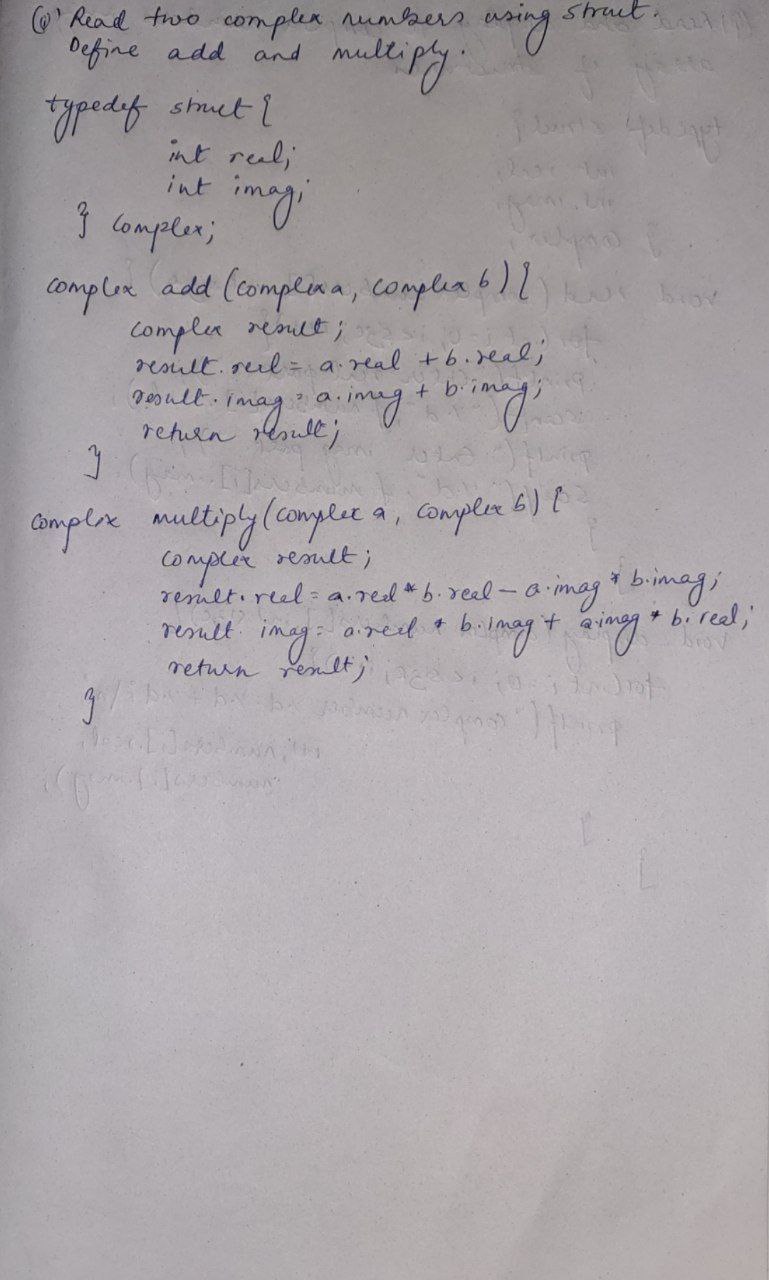 Q) Read two complex numbers using struct.
Define add and multiply.
typedef struct {
int real;
int imag;
} complex;
complex add (complex a, complex b) {
complex result;
result.real = a.real + b.real;
result.imag = a.imag + b.imag;
return result;
}
complex multiply (complex a, complex b) {
complex result;
result.real = a.real * b.real - a.imag * b.imag;
result.imag = a.real * b.imag + a.imag * b.real;
return result;
}